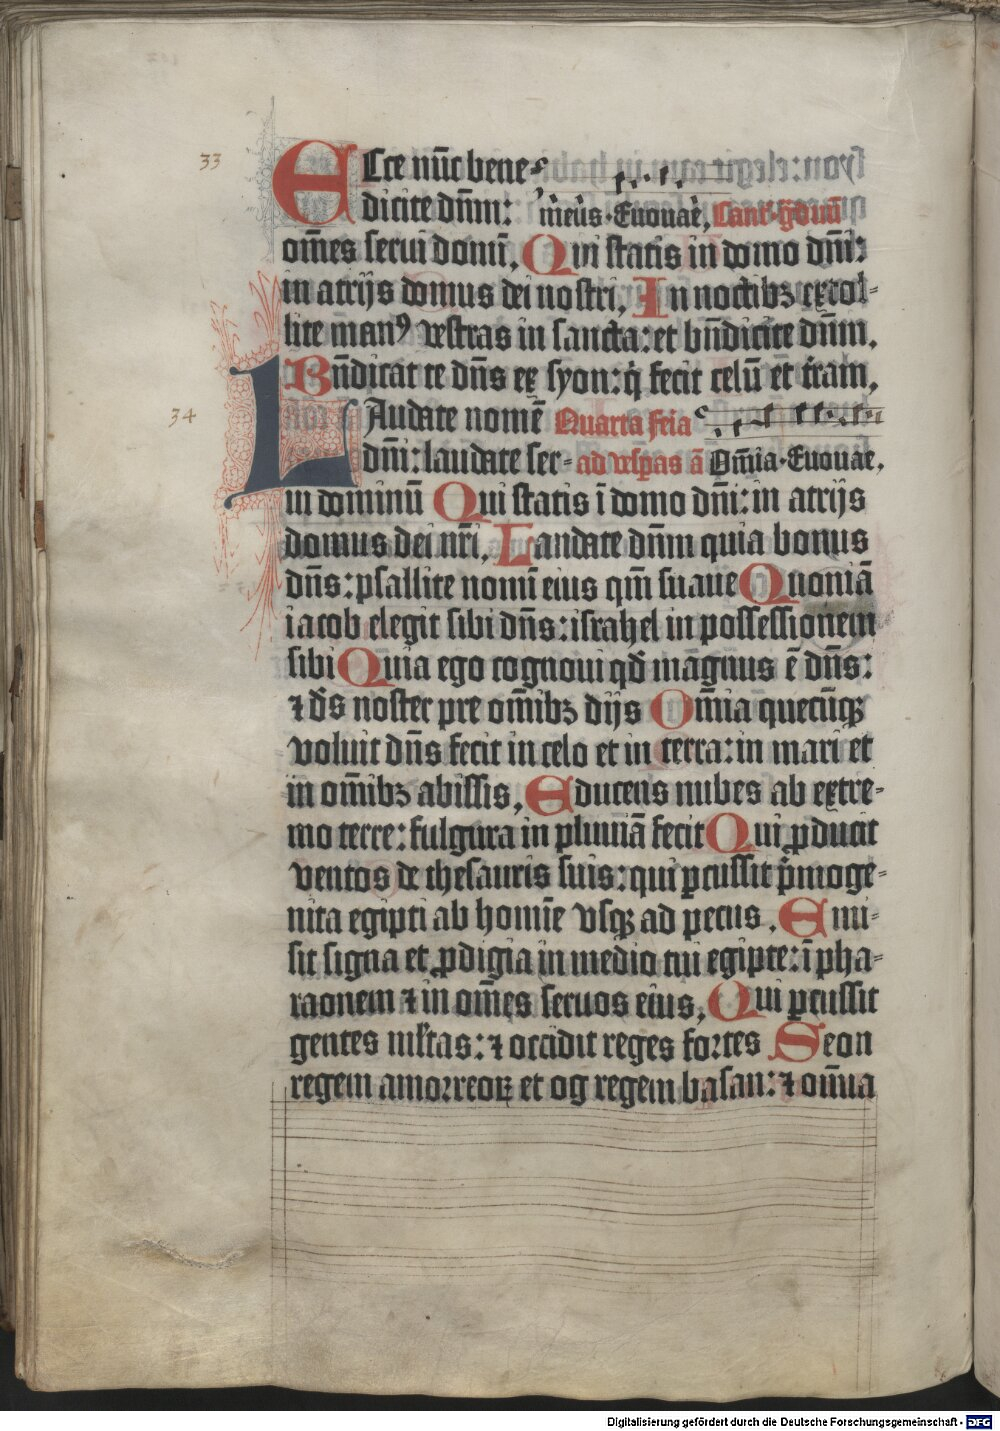 33
Ecce nūc bene-
dicite dn̄m: m̄eūs · Euouae, Cant' gͣduū
om̄es serui domī, Qui statis in domo dn̄i:
in atrijs domus dei nostri, In noctibꝫ extol-
lite manꝰ vestras in sancta: et bn̄dicite dn̄m,
Bn̄dicat te dn̄s ex syon: q̇ fecit celū et t̄ram,
34
Laudate nomē Quarta feīa
dn̄i: laudate ser- ad vesp̄as ā Om̄ia · Euouae,
ui dominū Qui statis ī domo dn̄i: in atrijs
domus dei nr̄i, Laudate dn̄m quia bonus
dn̄s: psallite nomī eius qm̄ suaue Quoniā
iacob elegit sibi dn̄s: israhel in possessionem
sibi Quia ego cognoui qd̄ magnus ē dn̄s:
⁊ ds̄ noster pre om̄ibꝫ dijs Om̄ia quecūqꝫ
voluit dn̄s fecit in celo et in terra: in mari et
in om̄ibꝫ abissis, Educens nubes ab extre-
mo terre: fulgura in pluuiā fecit Qui ꝓducit
ventos de thesauris suis: qui ꝑcussit p̄moge-
nita egipti ab homīe vsqꝫ ad pecus, Emi-
sit signa et ꝓdigia in medio tui egipte: ī pha-
raonem ⁊ in om̄es seruos eius, Qui ꝑcussit
gentes ml̄tas: ⁊ occidit reges fortes Seon
regem amorreoꝝ et og regem basan: ⁊ om̄ia
Digitalisierung gefördert durch die Deutsche Forschungsgemeinschaft - DFG